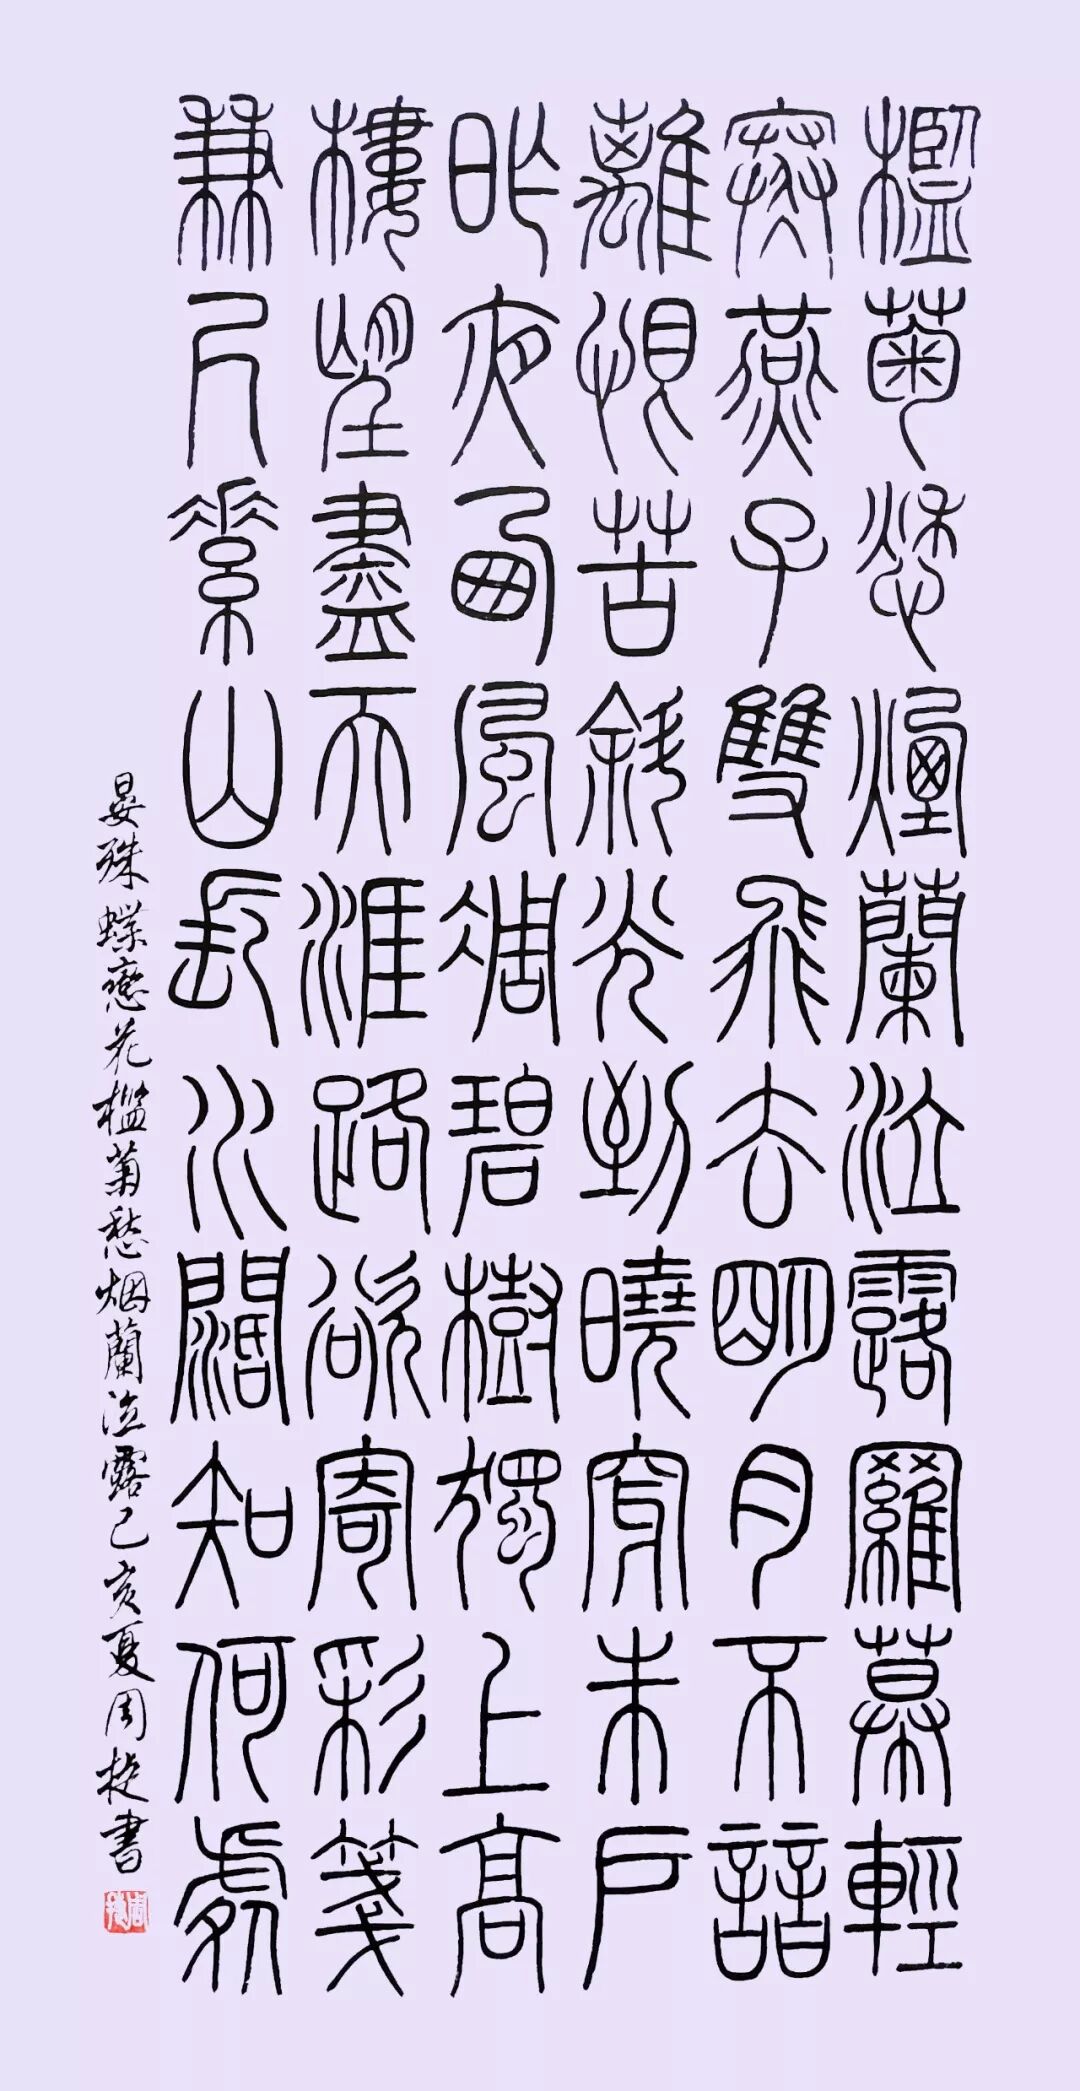 檻菊愁煙蘭泣露羅幕輕
寒燕子雙飛去明月不諳
離恨苦斜光到曉穿朱戶
昨夜西風凋碧樹獨上高
樓望盡天涯路欲寄彩箋
兼尺素山長水闊知何處
晏殊蝶戀花檻菊愁烟蘭泣露己亥夏周書